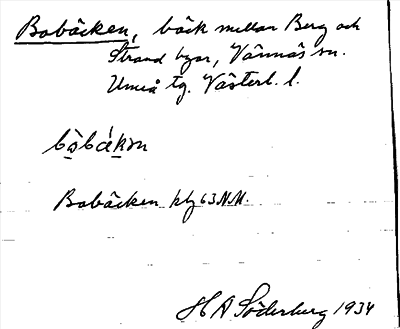 Bobäcken, bäck mellan Berg och
Strand byar, Vännäs sn.
Umeå tg. Västerb. l.
Bobäcken kbl 63 N.M.
H A Söderberg 1934